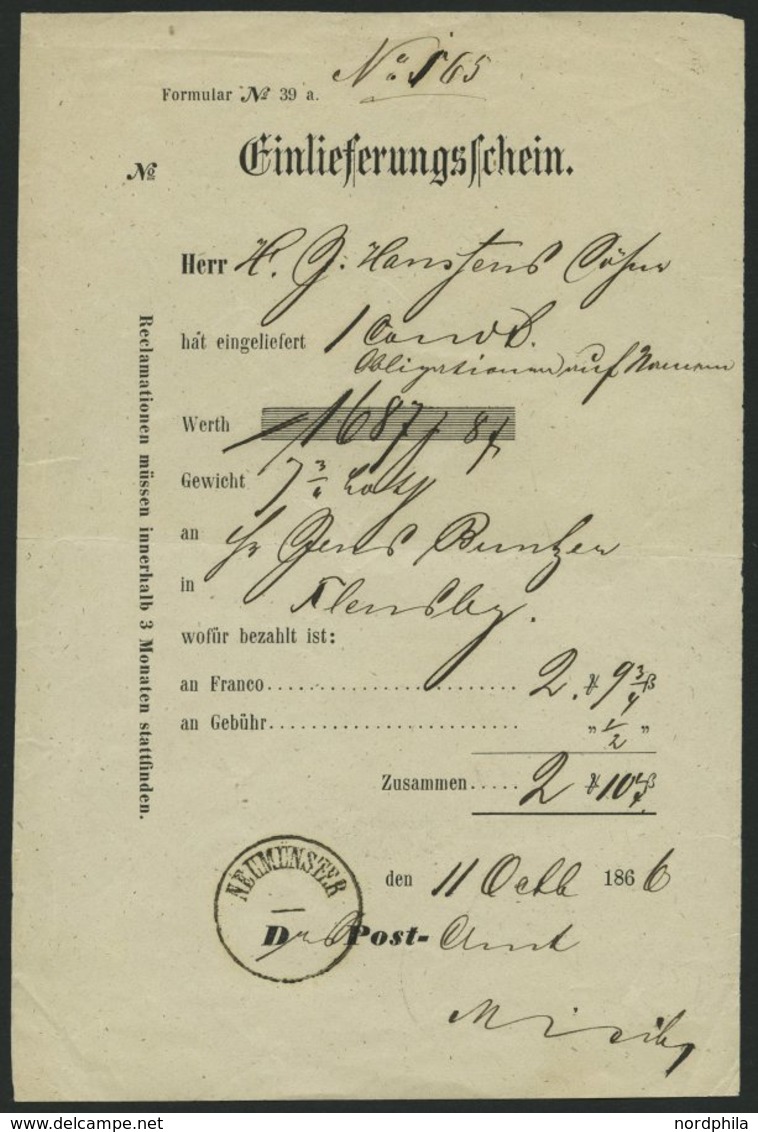 No 165
Formular № 39 a.
№ Einlieferungsschein.
Herr H. G. Hanssens Söhne
hat eingeliefert 1 Convt.
Obligationen auf Namen
Werth 1687 / 8
Gewicht 7 3/4 Loth
an Hr Jens Buntzen
in Flensbg.
wofür bezahlt ist:
an Franco 2 9 3/4 β
an Gebühr „ 1/2 „
Zusammen 2 10 1/4 β
NEUMÜNSTER
den 11 Octb 1866
Das Post-Amt
Reclamationen müssen innerhalb 3 Monaten stattfinden.
nordphila